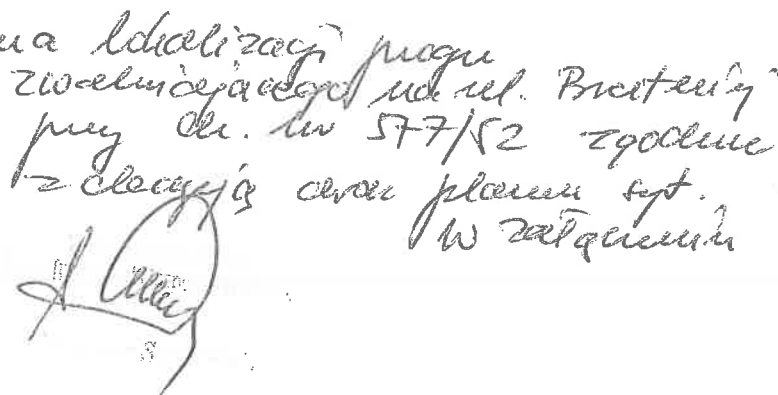 na lokalizacji progu
zwalniającego na ul. Bratniej
przy dz. nr 577/52 zgodnie
z decyzją oraz planem syt.
w załączeniu